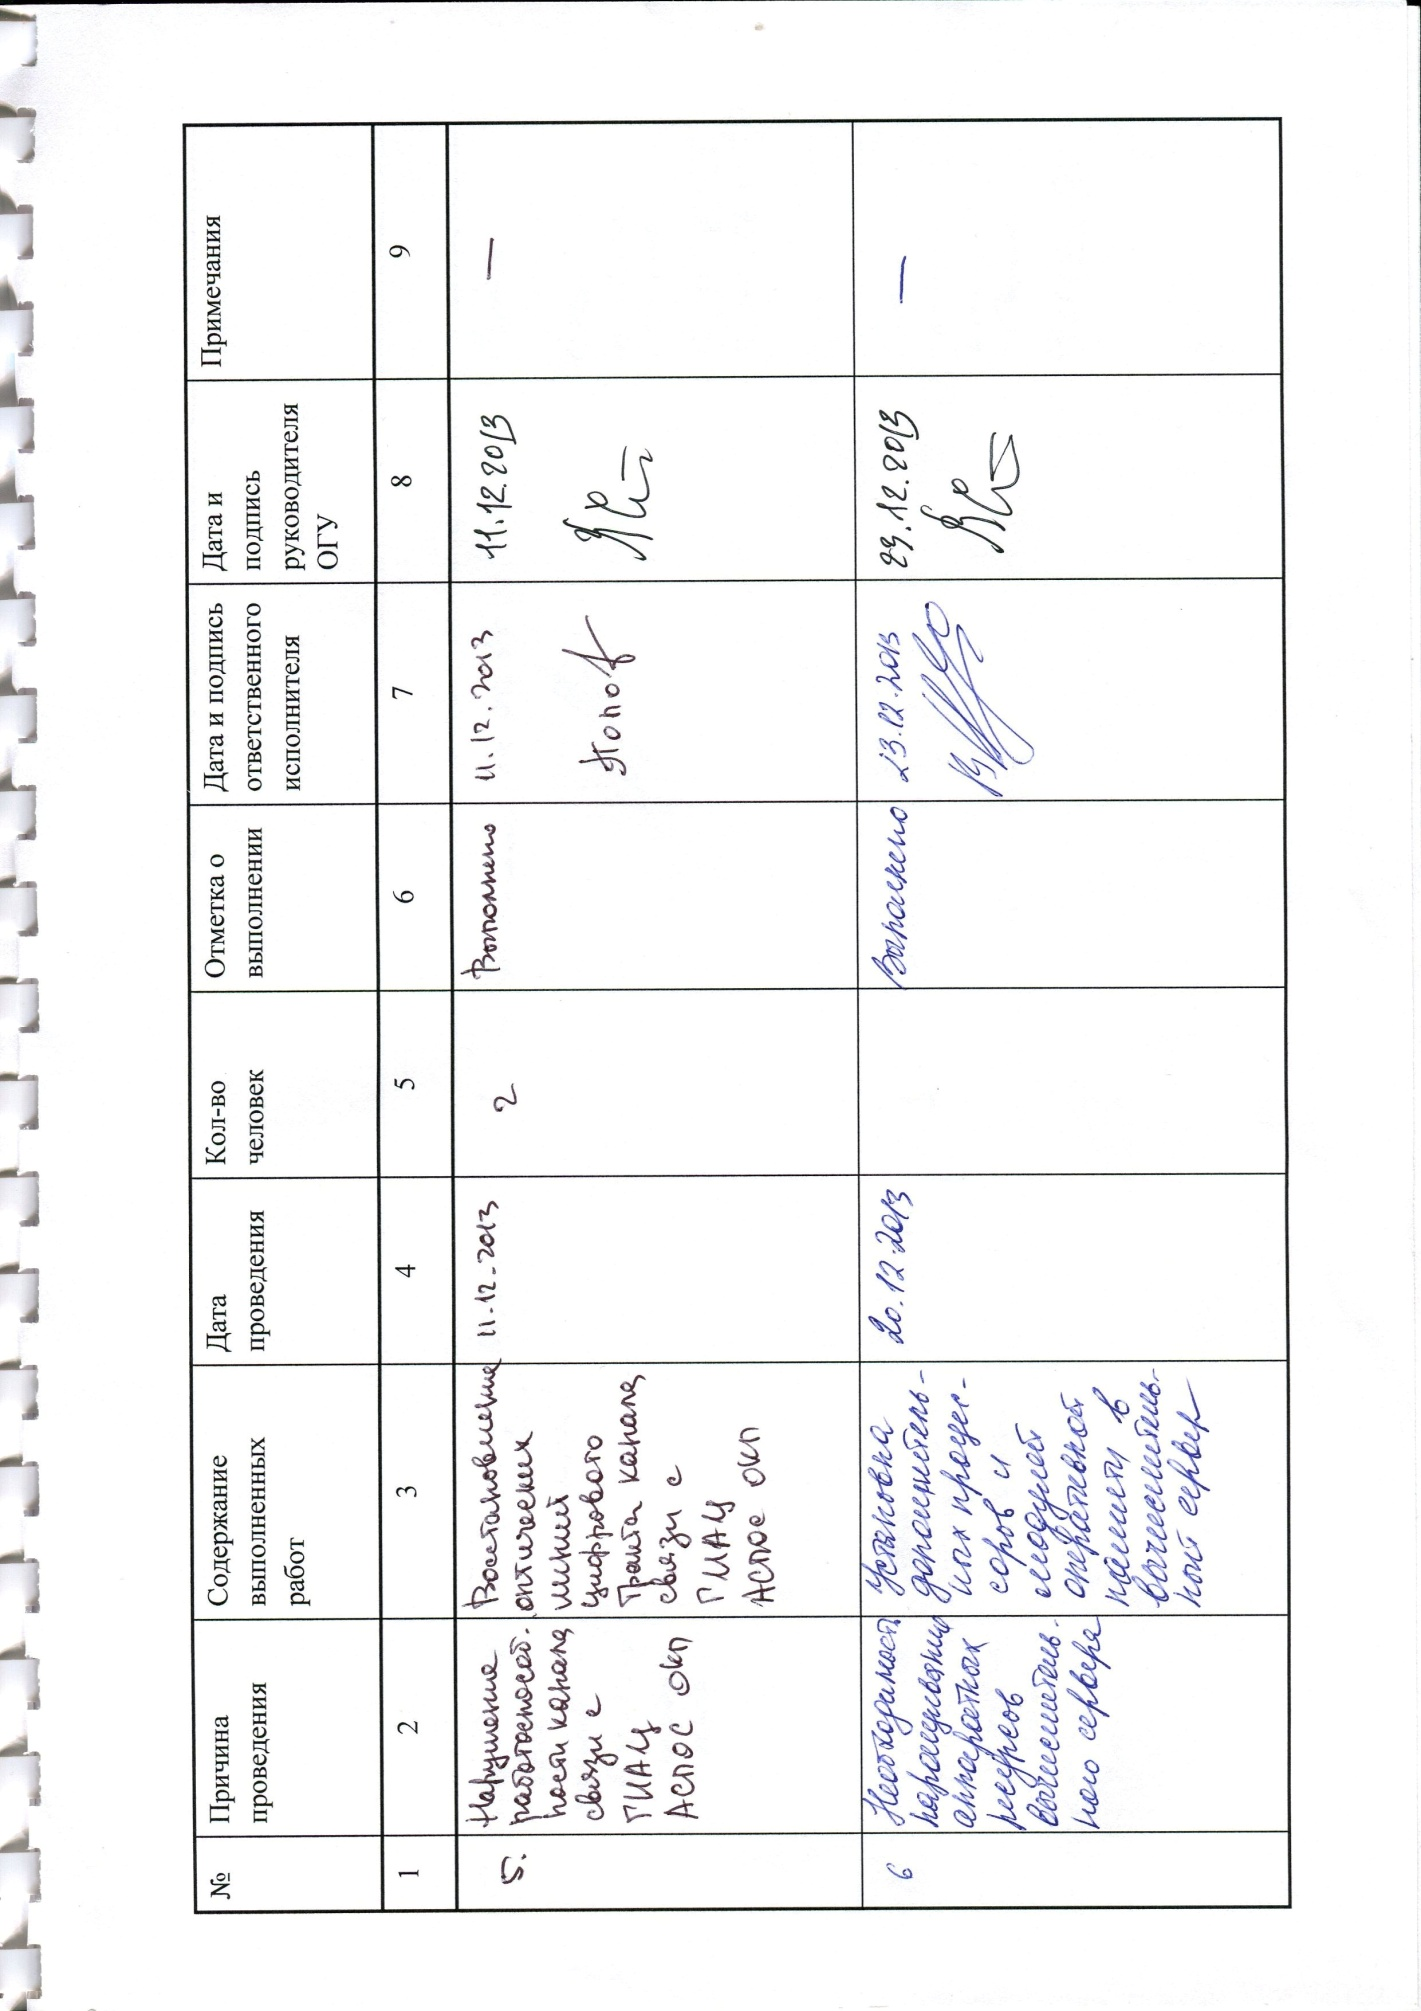 №
Причина
проведения
Содержание
выполненных
работ
Дата
проведения
Кол-во
человек
Отметка о
выполнении
Дата и подпись
ответственного
исполнителя
Дата и
подпись
руководителя
ОГУ
Примечания
1
2
3
4
5
6
7
8
9
5.
Нарушение
работоспособ.
ности канала
связи с
ГИАЦ
АСПОС ОКП
Восстановление
оптических
линий
цифрового
тракта канала
связи с
ГИАЦ
АСПОС ОКП
11.12.2013
2
Выполнено
11.12.2013
Попов
11.12.2013
—
6
Необходимость
наращивания
аппаратных
ресурсов
вычислитель-
ного сервера
Установка
дополнитель-
ных процес-
соров и
модулей
оперативной
памяти в
вычислитель-
ный сервер
20.12.2013
Выполнено
23.12.2013
23.12.2013
—